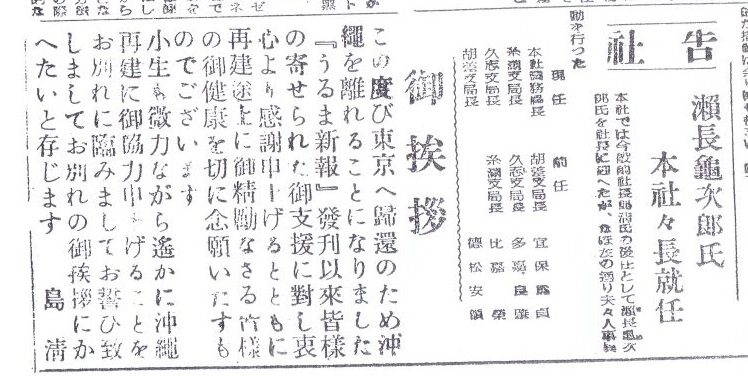 社告
瀬長龜次郎氏
本社々長就任
本社では今般前社長島清氏の後任として瀬長龜次
郎氏を社長に迎へたが、なほ左の通り夫々人事異
動を行った
現任　前任
本社総務局長　胡差支局長　宜保爲貞
糸満支局長　久志支局長　多嘉良
久志支局長　糸満支局長　比嘉榮
胡差支局長　德松安
御挨拶
この度び東京へ歸還のため沖
繩を離れることになりました
『うるま新報』發刊以來皆様
の寄せられた御支援に對し衷
心より感謝申上げるとともに
再建途上に御精勵なさる皆様
の御健康を切に念願いたすも
のでございます
小生も微力ながら遙かに沖繩
再建に御協力申上げることを
お別れに臨みましてお誓ひ致
しましてお別れの御挨拶にか
へたいと存じます
島清